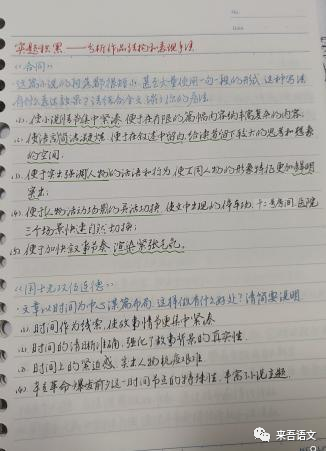 No.
Date
实题积累——分析作品结构和表现手法
《合同》
这篇小说的段落都很短小,甚至大量使用一句一段的形式,这种写法
有什么表达效果?请结合全文谈谈你的看法
(1). 使小说情节集中紧凑,便于在有限的篇幅内容纳丰富复杂的内容.
(2). 使语言简洁凝练,便于在叙述中留白,给读者留下较大的思考和想象
的空间.
(3). 便于突出强调人物的话语和行为,使不同人物的形象特征更加鲜明
突出.
(4). 便于人物活动场景的灵活切换,使文中出现的停车场、十二号房间、医院
三个场景快速自然切换;
(5). 便于加快叙事节奏,渲染紧张气氛.
《国士无双伍连德》
·文章以时间为中心谋篇布局,这样做有什么好处?请简要说明
(1) 时间作为线索,使故事情节更集中紧凑
(2) 时间的清晰准确,强化了故事背景的真实性.
(3) 时间上的紧迫感,突出人物抗疫艰难.
(4) 辛亥革命爆发前夕这一时间节点的特殊性,丰富小说主题.
来吾语文